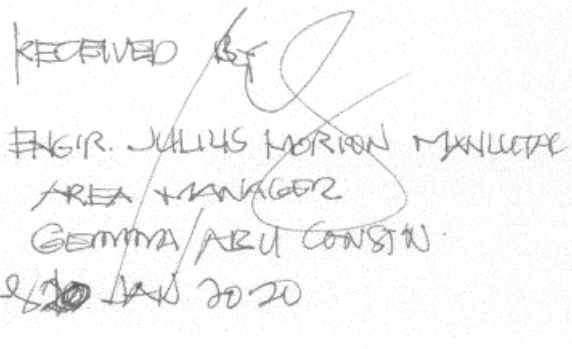 RECEIVED BY
ENGIR. JULIUS MORION MANLUTAC
AREA MANAGER
GEMMA/ABU CONSTN.
JAN 2020